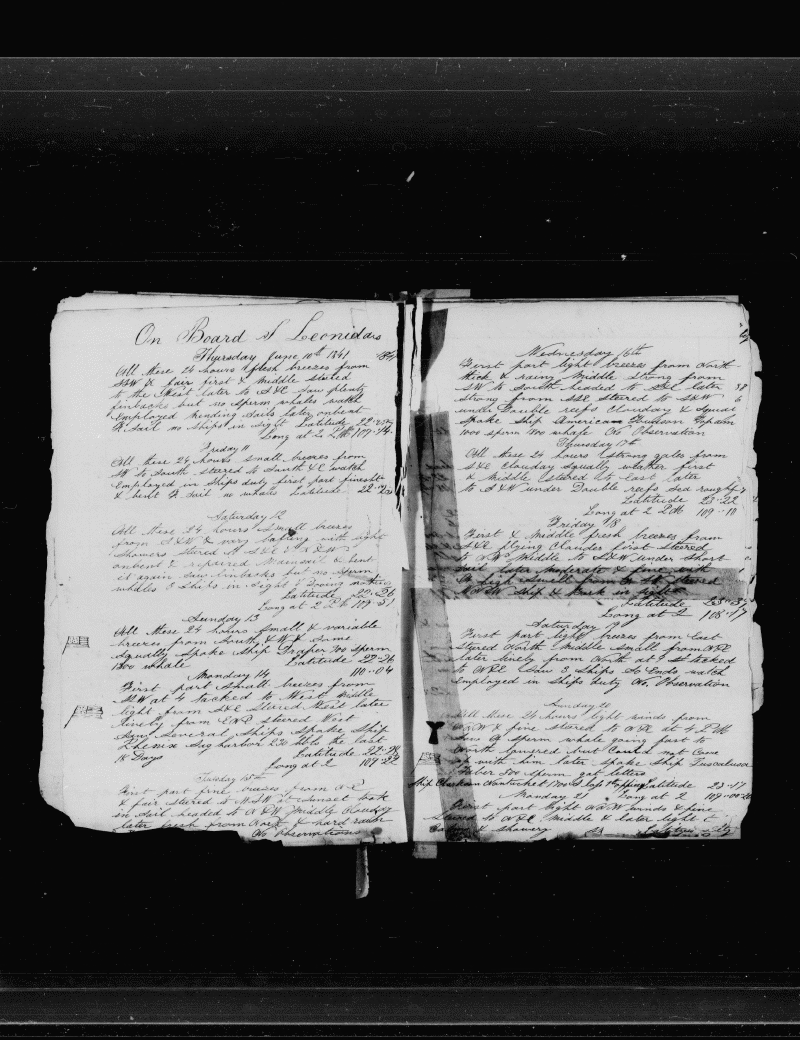 On Board of Leonidas
Thursday June 10th 1841
All these 24 hours fresh breezes from
SSW & fair first & Middle steered
to the West later to S&E saw plenty
finbacks but no sperm whales watch
Employed mending sails later onbent
sail no ships in sight Latitude 22-
Long at 2 PM 109-14
Friday 11
All these 24 hours small breezes from
SW to South steered to South & E watch
Employed in Ships duty first part
& bent sail no whales Latitude 22-
Saturday 12
All these 24 hours Small breezes
from S&W & very with light
Showers steered S&E & W
onbent & repaired Mainsail & bent
it again saw finbacks but no sperm
whales 2 Ships in Sight
Latitude 22-26
Long at 2 PM 109-51
Sunday 13
All these 24 hours Small & variable
breezes from South & W & some
squally Spoke Ship Draper 700 sperm
1200 whale Latitude 22-26
110-04
Monday 14
First part Small breezes from
SW at 4 Tacked to West Middle
light from S&E Steered West later
lively from ENE steered West
Saw Several Ships Spoke Ship
Phenix Sag harbor 230 bbls the last
18 Days Latitude 22-28
Long at 2 109-22
Tuesday 15th
First part fine breezes from
& fair steered to WSW at sunset took
in Sail headed to N&W Middle Cloudy
later fresh from North & hard rain
No Observations
Wednesday 16th
First part light breezes from North
thick & rainy Middle strong from
SW to South headed to S&E later
strong from S&E Steered to S&W
under Double reefs Clouday & Squal
Spoke Ship American Hudson Topham
1000 sperm 700 whale No Observation
Thursday 17th
All these 24 hours strong gales from
S&E Clouday squally wather first
& Middle steered to East later
to S&W under Double reefs sea rough
Latitude 23-22
Long at 2 PM 109-10
Friday 18
First & Middle fresh breezes from
S&E flying Clouds first steered
to Middle to S&W under Short
sail later moderate & fine with
a high swell from steered
Ship & Bark in sight
Latitude 23-37
Long at 2 108-47
Saturday 19
First part light breezes from East
stured North Middle small from
later lively from North at Tacked
to Saw 3 Ships So Ends watch
employed in Ships duty No Observation
Sunday 20
All these 24 hours light winds from
& fine stured to at 4 PM
saw a sperm whale going fast to
North lowered but Could not Come
up with him later spoke Ship Tuscaloosa
Taber 300 sperm got letters
Ship Clarkson Nantucket 1700 Latitude 23-17
Long at 2 109-00
Monday 21
First part light winds & fine
Steered to Middle & later light &
& showery